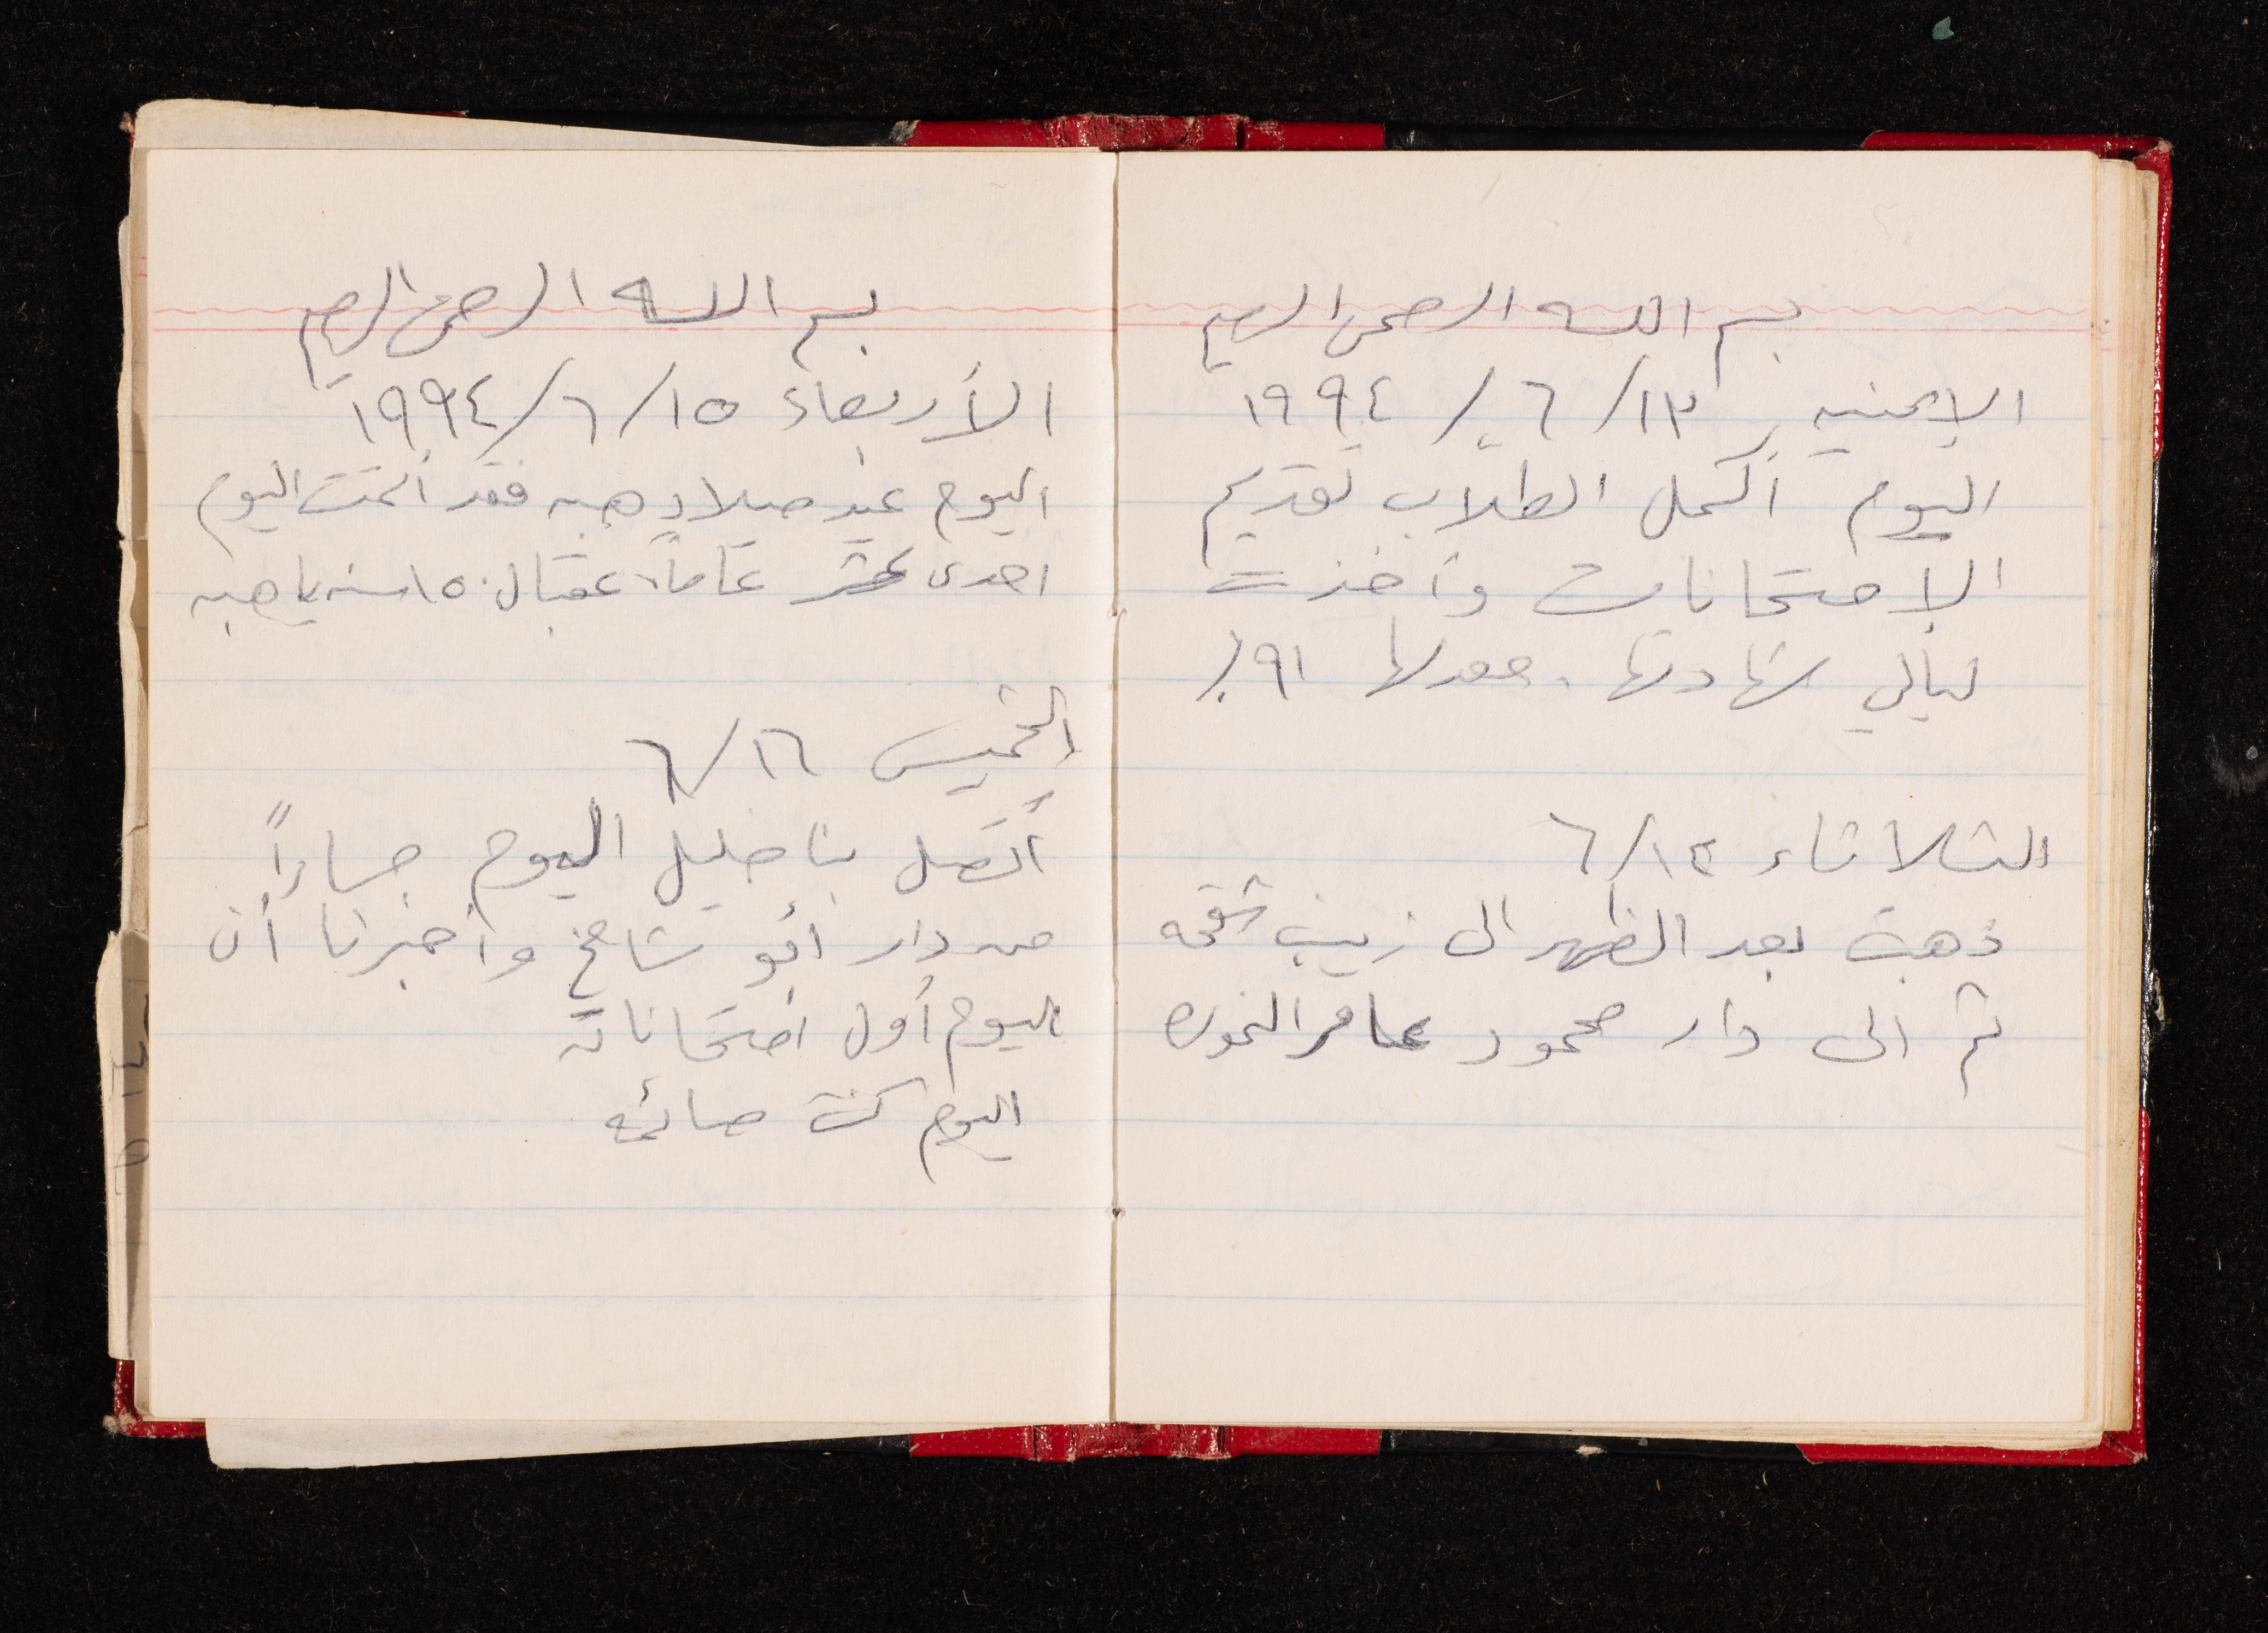 بسم الله الرحمن الرحيم
الاثنين ١٣/ ٦/ ١٩٩٤
اليوم أكمل الطلاب تقديم
الامتحانات وأخذت
ليالي شهادتها. معدلها ٩١٪
الثلاثاء ١٤/ ٦
ذهبت بعد الظهر الى زينب
ثم الى دار محمود عامر
بسم الله الرحمن الرحيم
الأربعاء ١٥/ ٦/ ١٩٩٤
اليوم عيد ميلاد هبه فقد أتمت اليوم
احدى عشر عاماً، عقبال ١٥٠ سنه يا هبه
الخميس ١٦/ ٦
أتصل بنا خليل اليوم مساءاً
من دار ابو شامخ وأخبرنا أن
اليوم أول امتحاناته
اليوم كنت صائمه